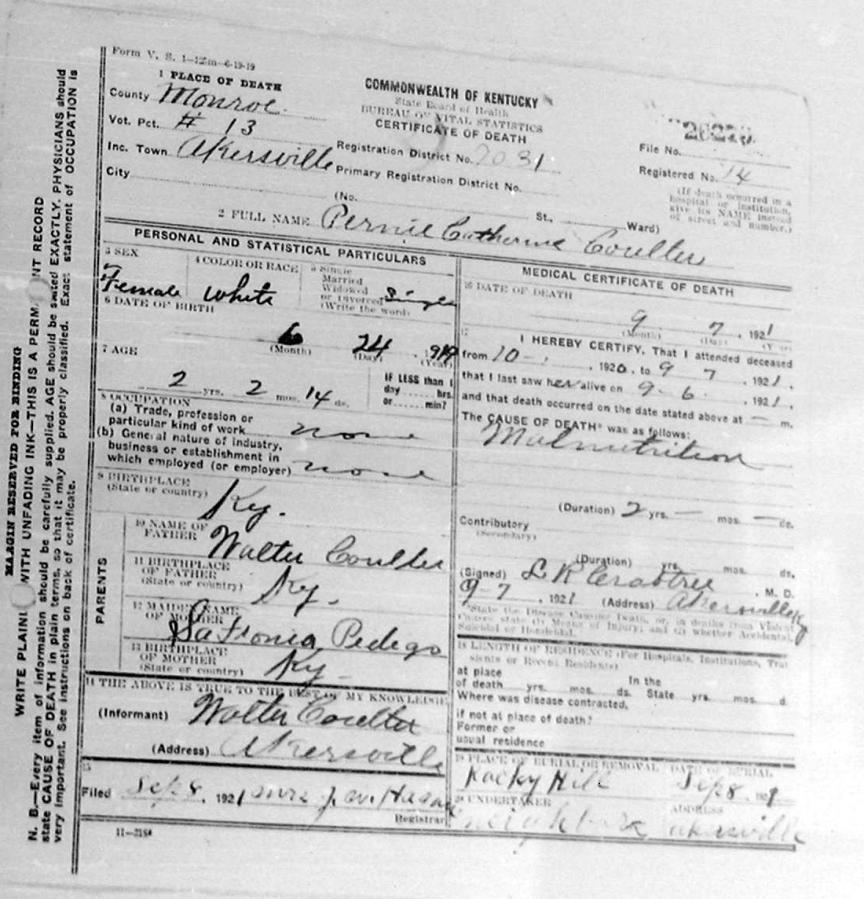 Form V. S. 1—125m—6-19-19
1 PLACE OF DEATH
County Monroe
Vot. Pct. # 13
Inc. Town Akersville
City
COMMONWEALTH OF KENTUCKY
State Board of Health
BUREAU OF VITAL STATISTICS
CERTIFICATE OF DEATH
Registration District No. 7031
Primary Registration District No.
File No.
Registered No. 14
(No. St., Ward)
(If death occurred in a
hospital or institution,
give its NAME instead
of street and number.)
2 FULL NAME Pernie Catherine Coulter
PERSONAL AND STATISTICAL PARTICULARS
3 SEX
Female
4 COLOR OR RACE
White
5 Single
Married
Widowed
or Divorced
(Write the word)
Single
6 DATE OF BIRTH
6 24 1919
(Month) (Day) (Year)
7 AGE
2 yrs. 2 mos. 14 ds.
IF LESS than 1
day hrs.
or min?
8 OCCUPATION
(a) Trade, profession or
particular kind of work none
(b) General nature of industry,
business or establishment in
which employed (or employer) none
9 BIRTHPLACE
(State or country) Ky.
PARENTS
10 NAME OF
FATHER Walter Coulter
11 BIRTHPLACE
OF FATHER
(State or country) Ky.
12 MAIDEN NAME
OF MOTHER Pedego
13 BIRTHPLACE
OF MOTHER
(State or country) Ky
14 THE ABOVE IS TRUE TO THE BEST OF MY KNOWLEDGE
(Informant) Walter Coulter
(Address) Akersville
15
Filed Sep 8, 1921 Mrs J. W.
Registrar
11—2184
MEDICAL CERTIFICATE OF DEATH
16 DATE OF DEATH
9 7, 1921
(Month) (Day) (Year)
17 I HEREBY CERTIFY, That I attended deceased
from 10 - , 1920, to 9 7, 1921,
that I last saw her alive on 9 - 6, 1921,
and that death occurred on the date stated above at — m.
The CAUSE OF DEATH* was as follows:
Malnutrition
(Duration) 2 yrs. — mos. — ds.
Contributory
(Secondary)
(Duration) yrs. mos. ds.
(Signed) L R Crabtree, M. D.
9-7, 1921 (Address) Akersville Ky
*State the Disease Causing Death, or, in deaths from Violent
Causes state (1) Means of Injury; and (2) whether Accidental,
Suicidal or Homicidal.
18 LENGTH OF RESIDENCE (For Hospitals, Institutions, Tran
sients or Recent Residents)
at place In the
of death yrs. mos. ds. State yrs. mos. d
Where was disease contracted,
if not at place of death?
Former or
usual residence
19 PLACE OF BURIAL OR REMOVAL DATE OF BURIAL
Rocky Hill Sep 8, 1921
20 UNDERTAKER ADDRESS
neighbors Akersville
MARGIN RESERVED FOR BINDING
WRITE PLAINL WITH UNFADING INK—THIS IS A PERM NT RECORD
N. B.—Every item of information should be carefully supplied. AGE should be stated EXACTLY. PHYSICIANS should
state CAUSE OF DEATH in plain terms, so that it may be properly classified. Exact statement of OCCUPATION is
very important. See instructions on back of certificate.